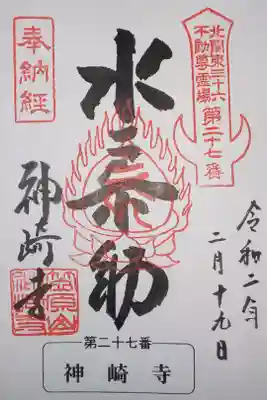 北関東三十六
不動尊霊場
第二十七番
奉納経
水不動
令和二年
二月十九日
神崎寺
第二十七番
神崎寺